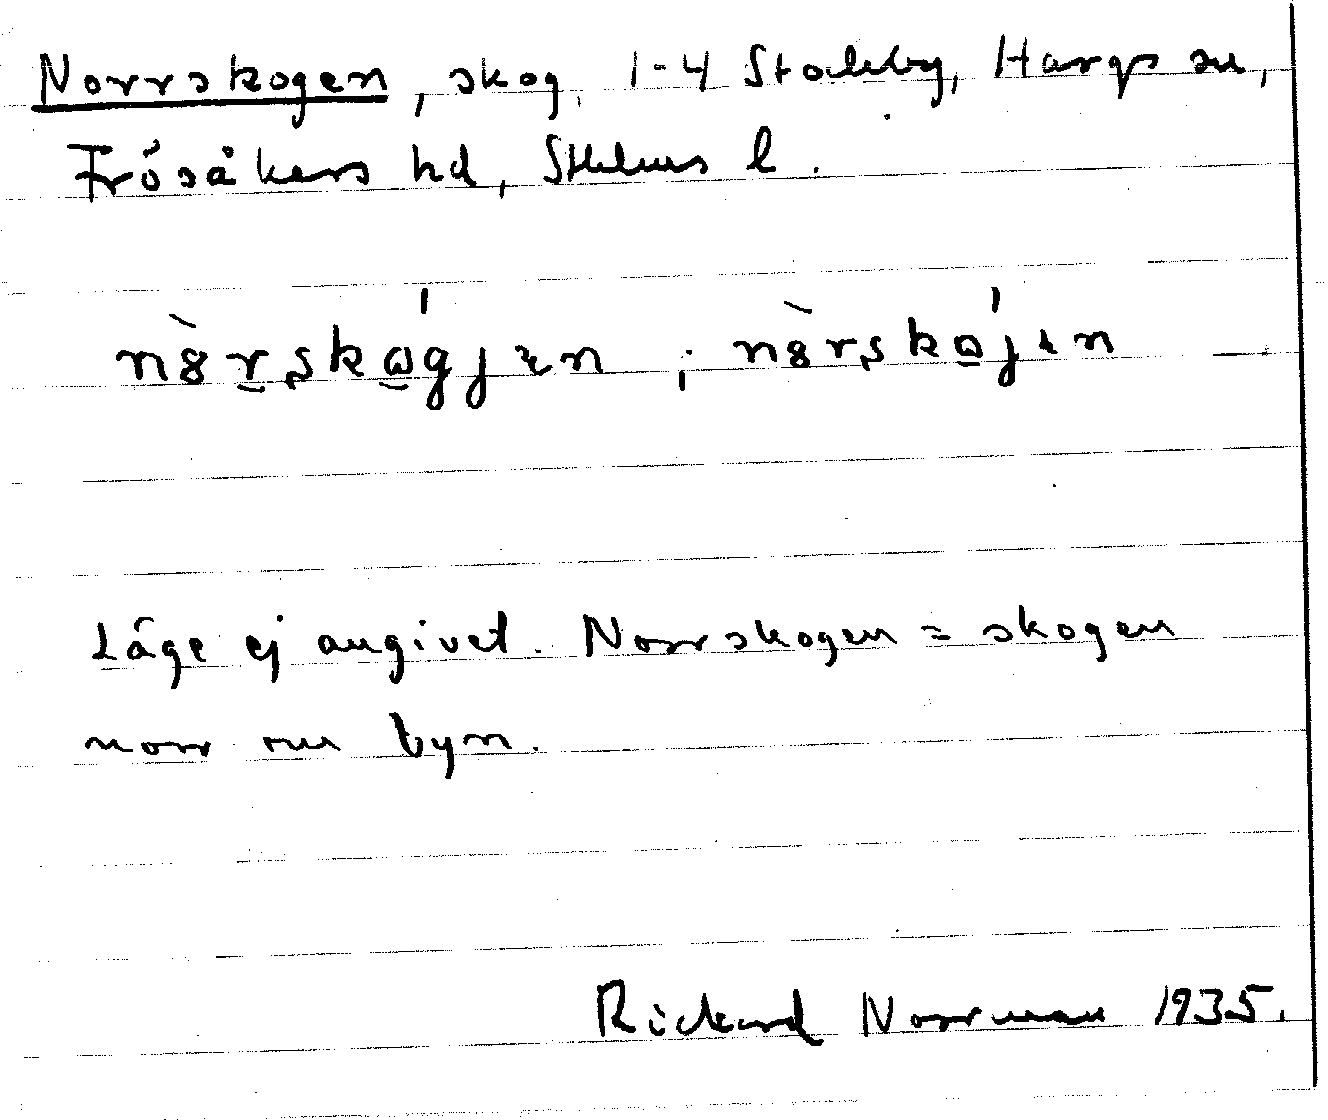 Norrskogen, skog, 1-4 Stockby, Hargs sn,
Frösåkers hd, Sthlms l.
Läge ej angivet. Norrskogen = skogen
norr om byn.
Rickard Norrman 1935.